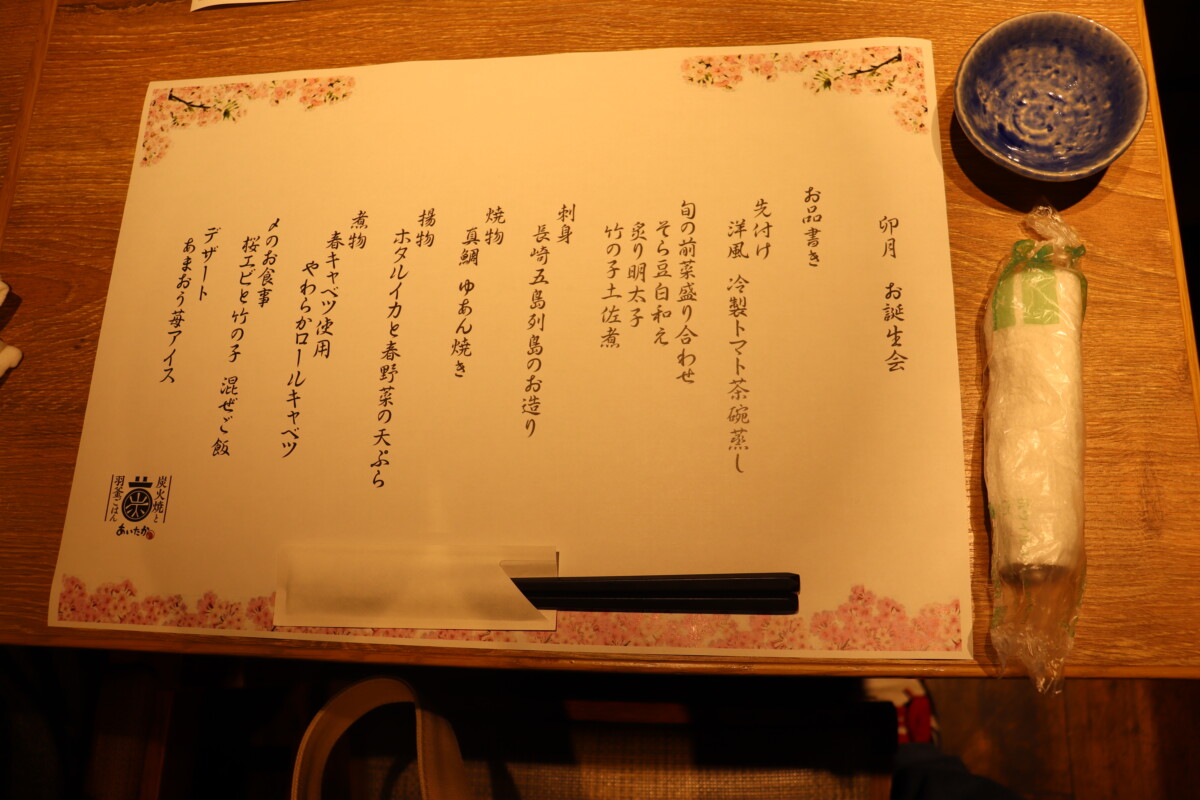 卯月 お誕生会
お品書き
先付け
洋風 冷製トマト茶碗蒸し
旬の前菜盛り合わせ
そら豆白和え
炙り明太子
竹の子土佐煮
刺身
長崎五島列島のお造り
焼物
真鯛 ゆあん焼き
揚物
ホタルイカと春野菜の天ぷら
煮物
春キャベツ使用
やわらかロールキャベツ
〆のお食事
桜エビと竹の子 混ぜご飯
デザート
あまおう苺アイス
炭火焼と
羽釜ごはん
あいたか